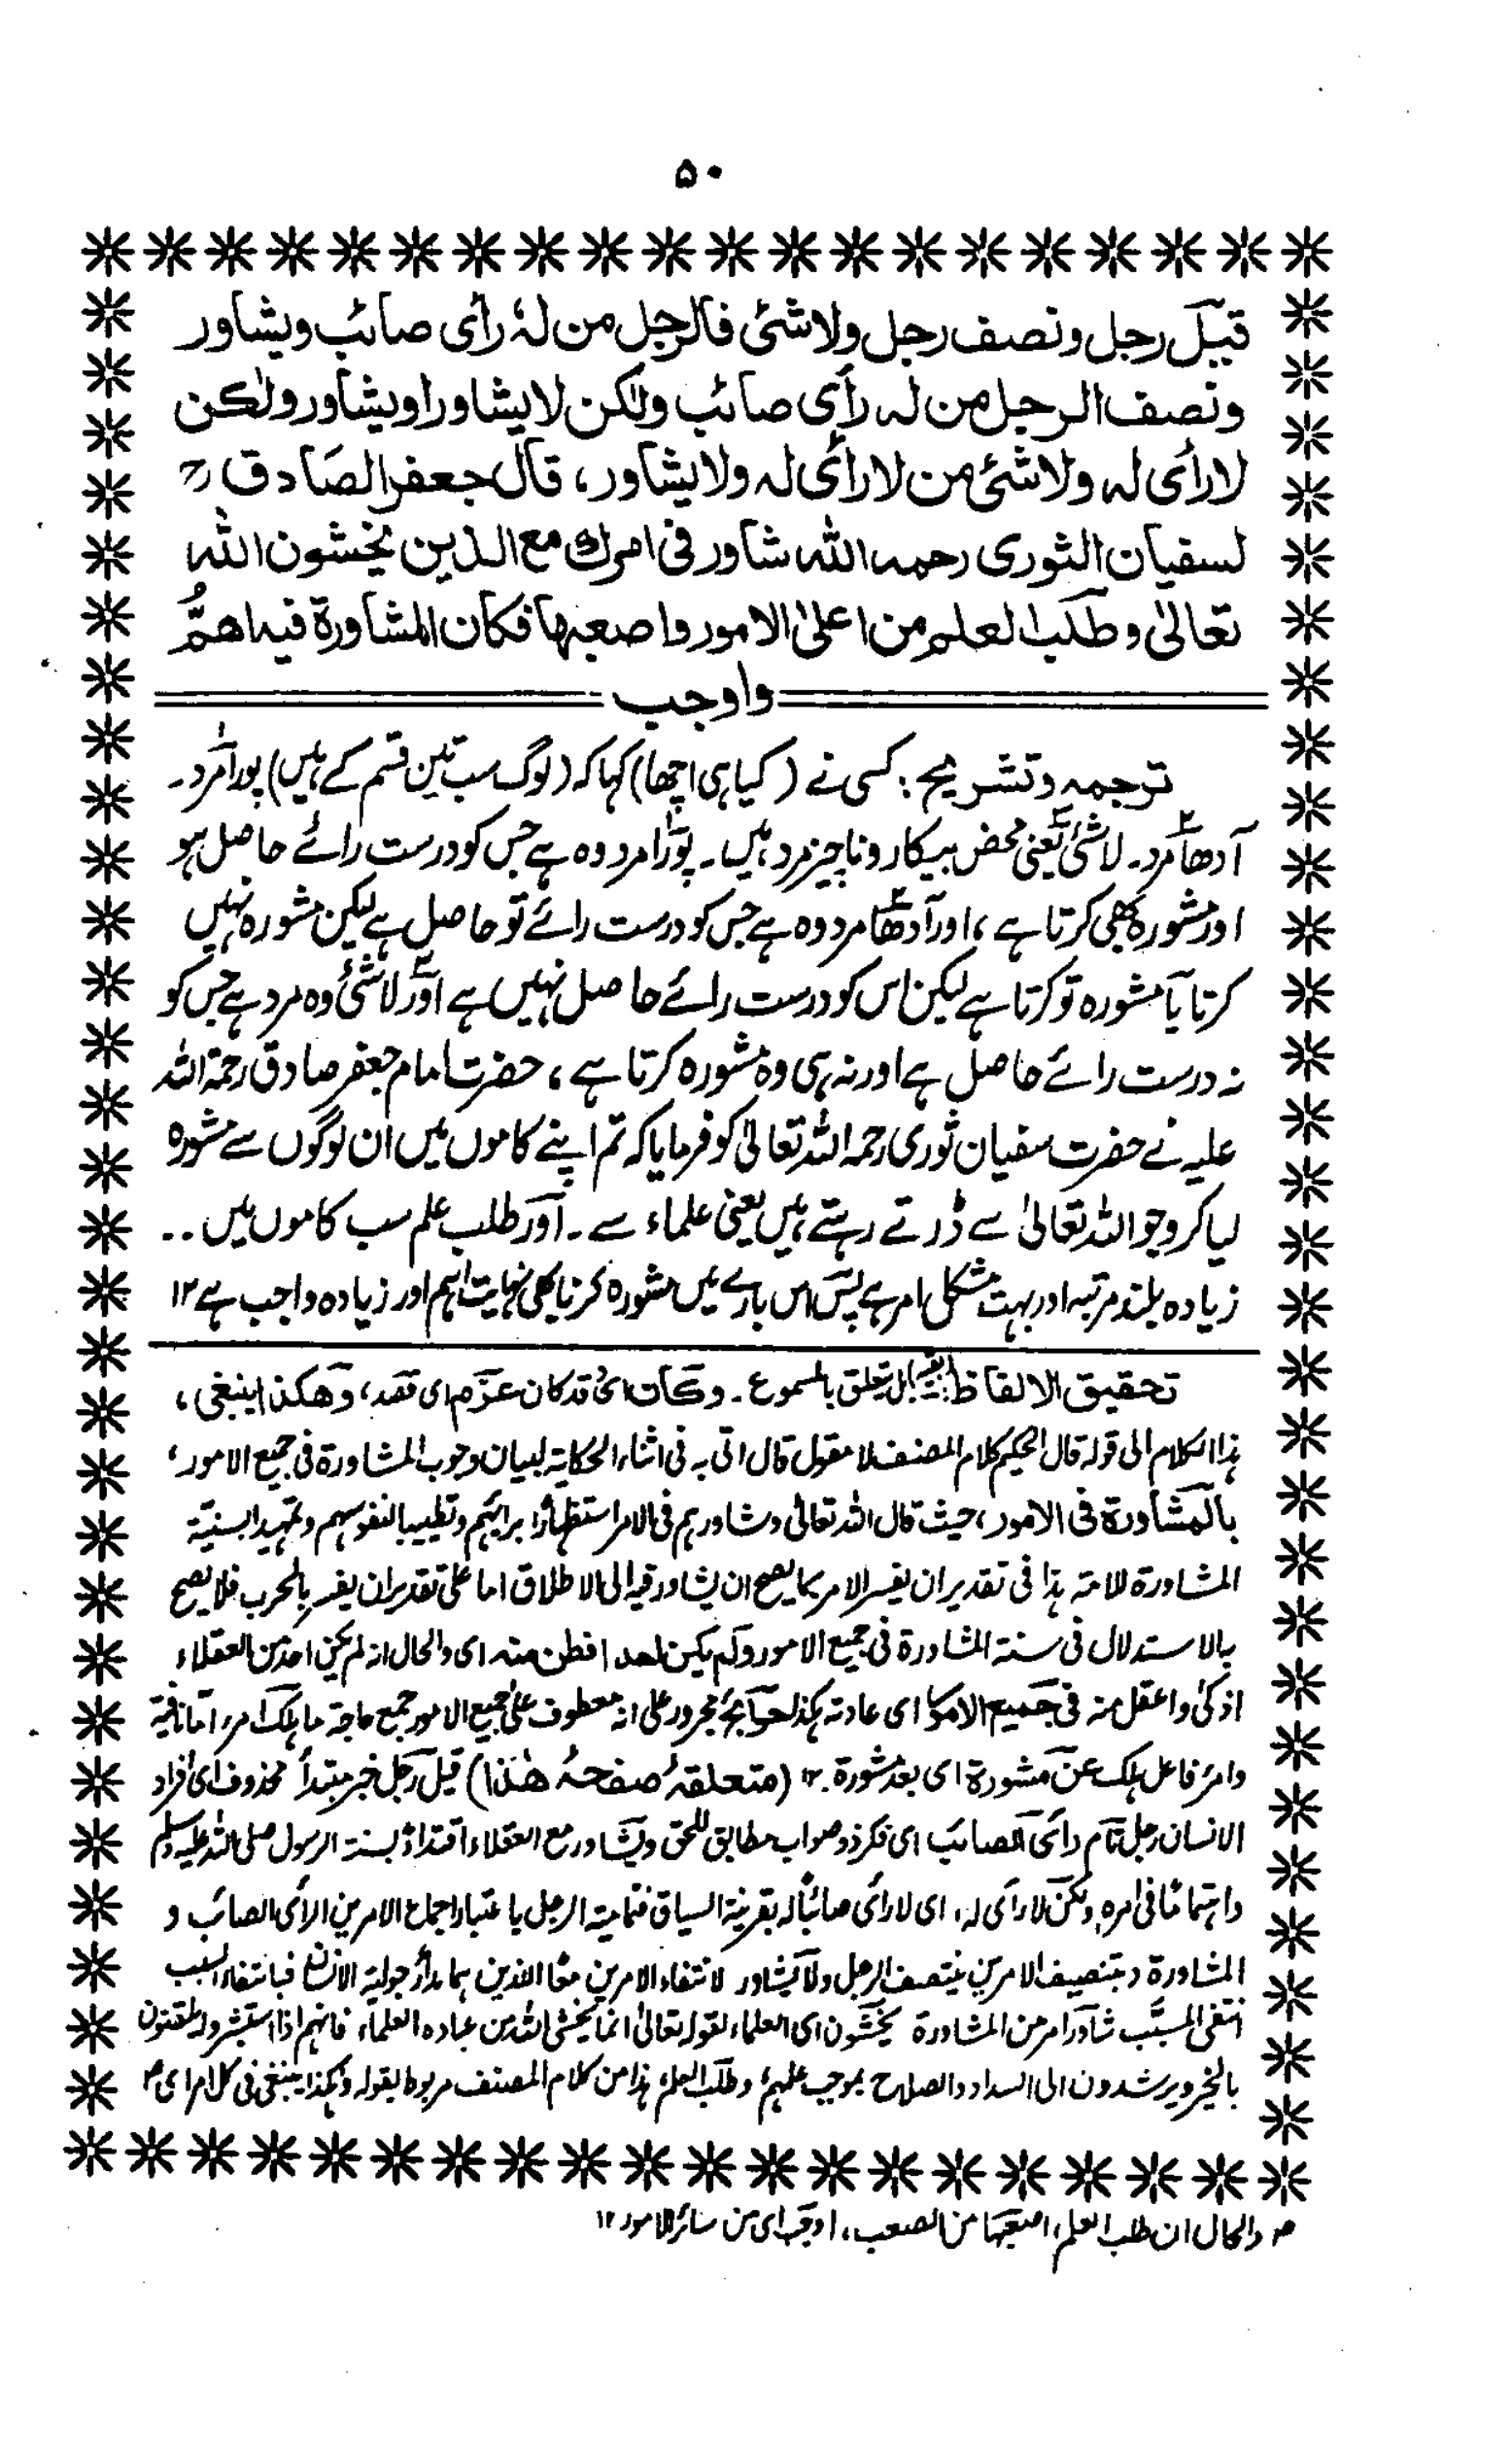 ۵۰
قیل رجل ونصف رجل ولاشئ فالرجل من لہٗ رأی صائب ویشاور
ونصف الرجل من لہ رأی صائب ولٰکن لایشاور اویشاور ولٰکن
لارأی لہ ولاشئ من لارأی لہ ولایشاور، قال جعفر الصادق رح
لسفیان الثوری رحمہ اللہ شاور فی امرك مع الذین یخشون اللہ
تعالیٰ وطلب العلم من اعلیٰ الامور واصعبہا فکان المشاورة فیہ اھمُّ
واوجب
ترجمہ وتشریح: کسی نے (کیا ہی اچھا) کہا کہ (لوگ سب تین قسم کے ہیں) پورا مرد۔
آدھا مرد۔ لاشئ یعنی محض بیکار و ناچیز مرد ہیں۔ پورا مرد وہ ہے جس کو درست رائے حاصل ہو
اور مشورہ بھی کرتا ہے، اور آدھا مرد وہ ہے جس کو درست رائے تو حاصل ہے لیکن مشورہ نہیں
کرتا یا مشورہ تو کرتا ہے لیکن اس کو درست رائے حاصل نہیں ہے اور لاشئ وہ مرد ہے جس کو
نہ درست رائے حاصل ہے اور نہ ہی وہ مشورہ کرتا ہے، حضرت امام جعفر صادق رحمۃ اللہ
علیہ نے حضرت سفیان ثوری رحمہ اللہ تعالیٰ کو فرمایا کہ تم اپنے کاموں میں ان لوگوں سے مشورہ
لیا کرو جو اللہ تعالیٰ سے ڈرتے رہتے ہیں یعنی علماء سے۔ اور طلب علم سب کاموں میں ..
زیادہ بلند مرتبہ اور بہت مشکل امر ہے پس اس بارے میں مشورہ کرنا بھی نہایت اہم اور زیادہ واجب ہے ۱۲
تحقیق الالفاظ یتعلق بالمسموع۔ وکان ای قد کان عزم ای قصد، وھکذا ینبغی،
ہذا الکلام الی قولہ قال الحکیم کلام المصنف لا مقول قال اتی بہ فی اثناء الحکایۃ لبیان وجوب المشاورة فی جمیع الامور،
بالمشاورة فی الامور، حیث قال اللہ تعالیٰ وشاورہم فی الامر استظہارًا برائہم وتطییبا لنفوسہم وتمہیدا لسنیۃ
المشاورة للامۃ ہذا فی تقدیر ان یفسر الامر بما یصح ان یشاور فیہ الی الاطلاق اما علی تقدیر ان یفسر بالحرب فلا یصح
بالاستدلال فی سنۃ المشاورة فی جمیع الامور ولم یکن احد افطن منہ ای والحال انہ لم یکن احد من العقلاء
اذکیٰ واعقل منہ فی جمیع الامور ای عادتہ ہکذا حوائج مجرور علی انہ معطوف علی جمیع الامور جمع حاجۃ ما ہلک امرء ما نافیۃ
وامرء فاعل ہلک عن مشورة ای بعد مشورة۔ ۱۲ (متعلقہٗ صفحہٗ ھٰذا) قیل رجل خبر مبتدأ محذوف ای افراد
الانسان رجل تام رأی الصائب ای فکر ذو صواب مطابق للحق ویشاور مع العقلاء اقتداءً بسنۃ الرسول صلی اللہ علیہ وسلم
واہتمامًا فی امرہ ولکن لارأی لہ، ای لا رأی صائبًا لہ بقرینۃ السیاق فتمامیۃ الرجل باعتبار اجماع الامرین الرأی الصائب و
المشاورة وبتنصیف الامرین یتنصف الرجل ولا یشاور لانتفاء الامرین معًا الذین ہما مدار رجولیۃ الانسان فبانتفاء السبب
انتفی المسبَّب شاور امر من المشاورة یخشون ای العلماء لقولہ تعالیٰ انما یخشی اللہ من عبادہ العلماء فانہم اذا استشیروا یفتون
بالخیر ویرشدون الی السداد والصلاح بموجب علمہم وطلب العلم ہذا من کلام المصنف مربوط بقولہ وہکذا ینبغی فی کل امر ای
والحال ان طلب العلم، اصعبہا من الصعب، اوجب ای من سائر الامور ۱۲